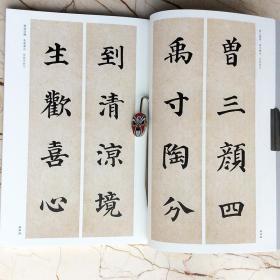 曾三顔四
禹寸陶分
到清涼境
生歡喜心